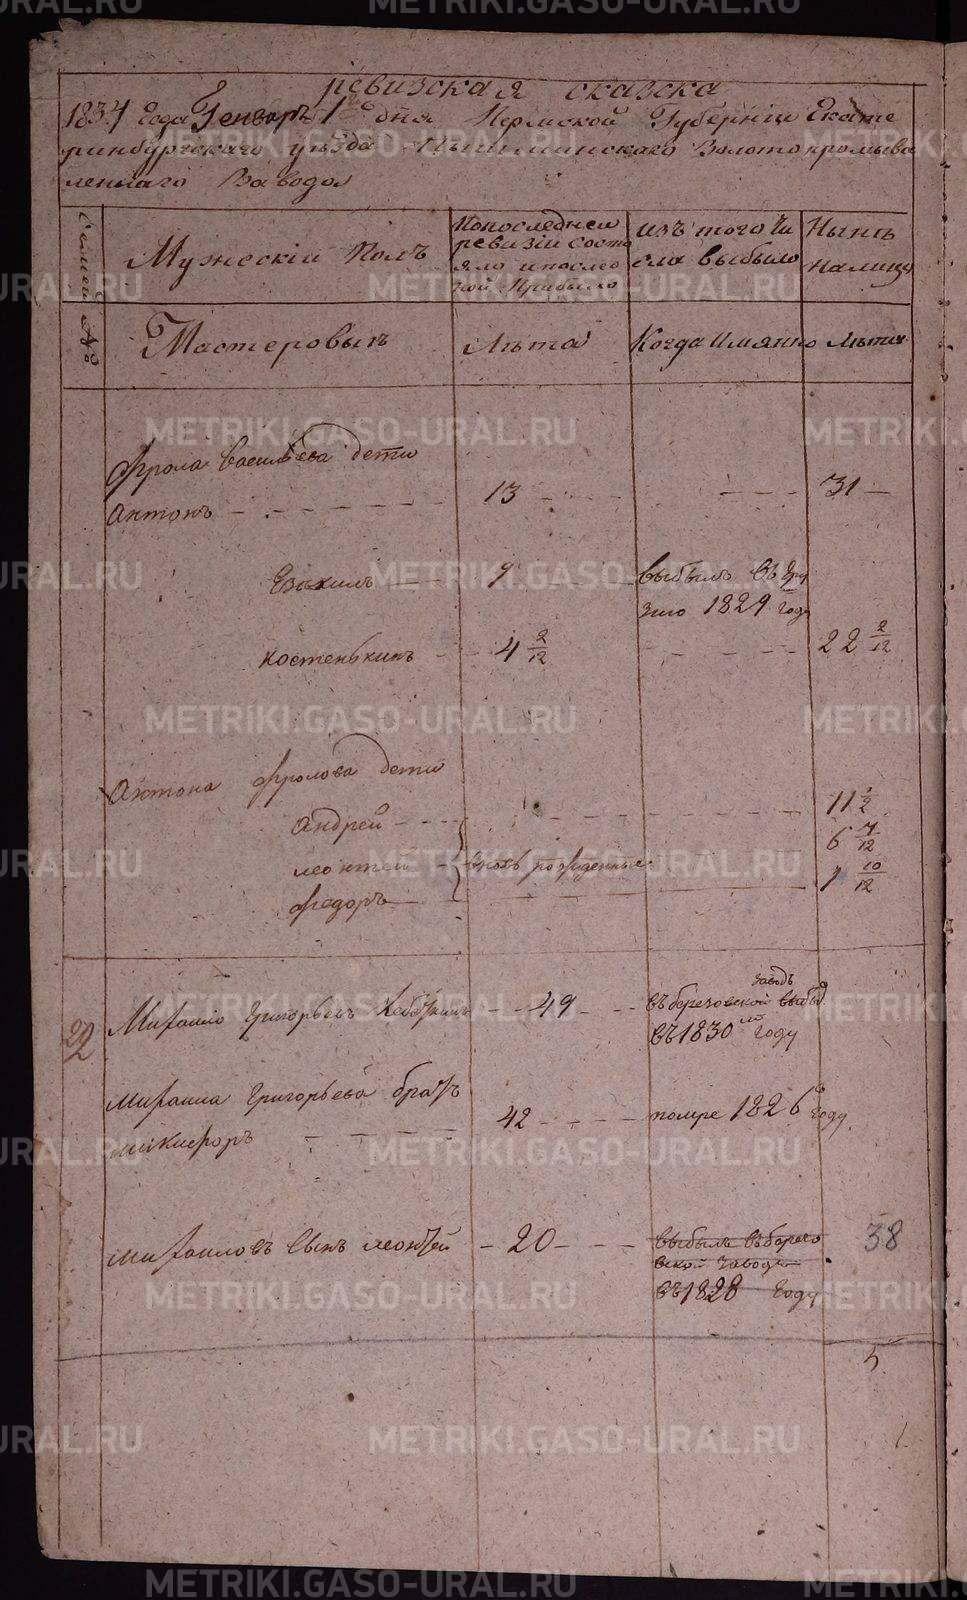 ревизская сказска
1834 Года Генваря 1 дня Пермской Губернии Екате
ринбургскаго уѣзда Пышминскаго Золотопромыва
леннаго Завода
Семей №
Мужескій Полъ
Попоследней
ревизіи состо
яло ипосле
той Прибыло
изъ того Чи
сла выбыло
Нынѣ
налицо
Мастеровыхъ
Лѣта
Когда Имянно
Лѣта
Фрола васильева дети
Антонъ 13 31
9 выбылъ
1829 года
костенькинъ 4 2/12 22 2/12
Антона фролова дети
Андрей 11 1/2
леонтей вновь рожденные 6 7/12
Федоръ 1 10/12
22
Михаило Григорьевъ 49 въ березовской заводъ выбыл
въ 1830 м году
михаила Григорьева братъ
никифоръ 42 помре 1826 году
михаиловъ сынъ леонтей 20 выбылъ въберезо 38
вской заводъ
въ 1828 году
5
METRIKI.GASO-URAL.RU